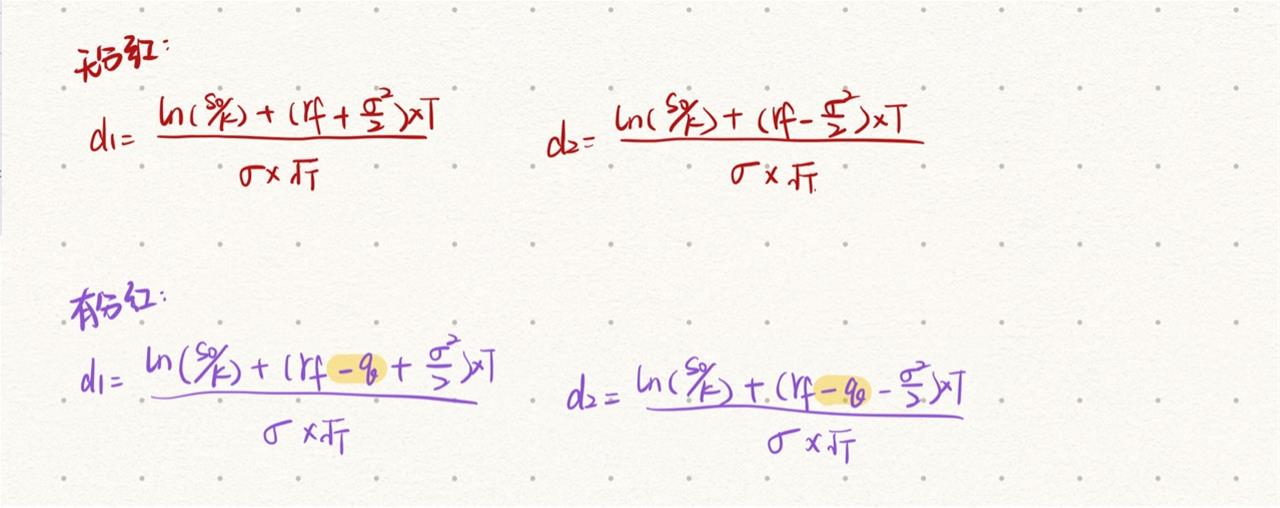 无分红:
d₁= (ln(S₀/K) + (rf + σ²/2)×T) / (σ×√T) d₂= (ln(S₀/K) + (rf - σ²/2)×T) / (σ×√T)
有分红:
d₁= (ln(S₀/K) + (rf - q + σ²/2)×T) / (σ×√T) d₂= (ln(S₀/K) + (rf - q - σ²/2)×T) / (σ×√T)